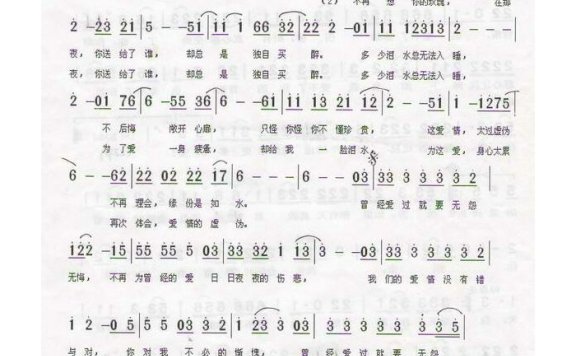 (2) 不再 想 你的玫瑰, 在那
2 - 23 21 | 5 - - 51 | 11 1 66 32 | 22 2 - 01 | 11 11 12313 | 2 - - -
夜, 你送 给了 谁, 却总 是 独自 买 醉。 多 少泪 水总无法入 睡,
夜, 你送 给了 谁, 却总 是 独自 买 醉。 多 少泪 水总无法入 睡,
2 - 01 76 | 6 - 55 36 | 6 - - 61 | 11 13 21 12 | 2 - - 51 | 1 - 1275 |
不 后悔 敞开 心扉, 只怪 你怪 你不 懂珍 贵, 这爱 情, 太过虚伪
为 了爱 一身 疲惫, 却给 我 一 脸泪 水, 为这 爱, 身心太累
6 - - 62 | 22 05 02 22 17 | 6 - - - | 6 - - 03 | 33 3 3 3 3 2 |
不再 理会, 缘 份是 如 水。 曾 经爱 过 就 要 无 怨
再次 体会, 爱 情的 虚 伪。
122 - 15 | 55 55 5 03 | 33 32 1 13 | 3 - - 03 | 33 3 3 3 3 2 |
无悔, 不再 为曾 经的 爱 日 日夜 夜的 伤 悲, 我 们的 爱 情 没 有 错
与 对, 你 对 我 不 必的 惭 愧, 曾 经爱 过 就 要 无 怨